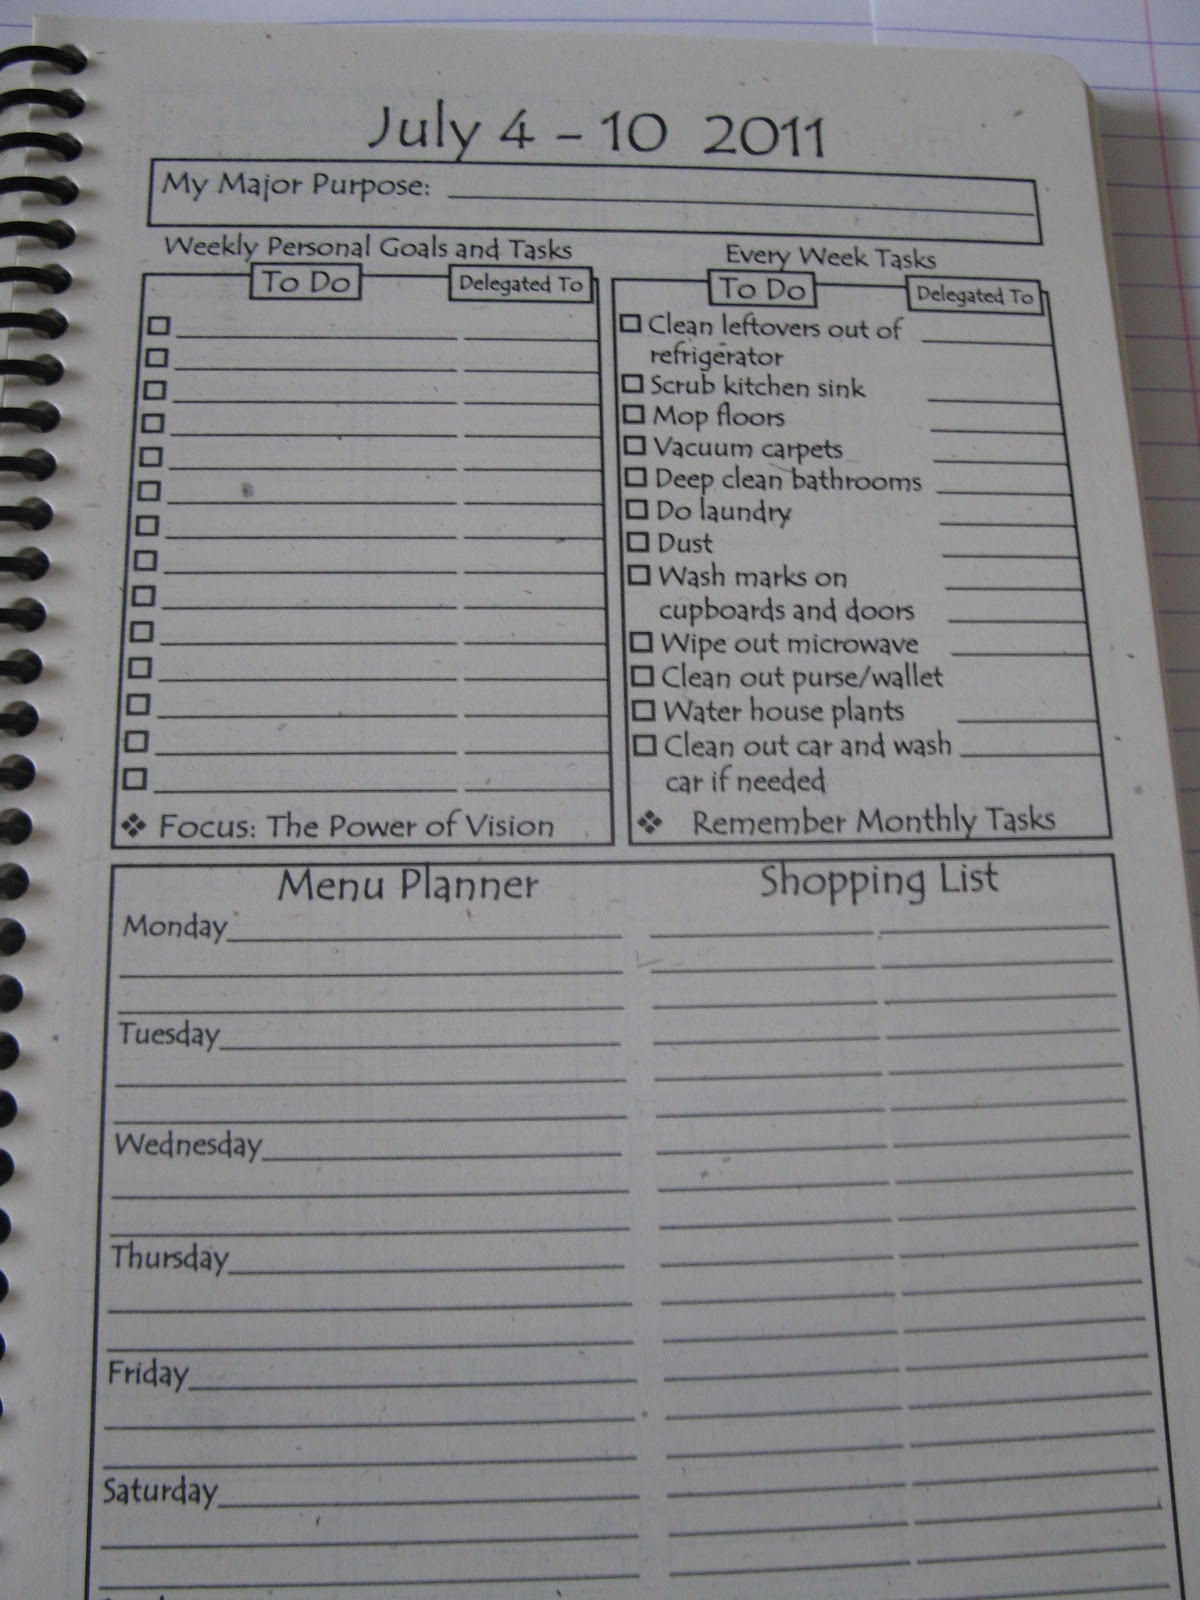 July 4 - 10 2011
My Major Purpose:
Weekly Personal Goals and Tasks
To Do
Delegated To
Focus: The Power of Vision
Every Week Tasks
To Do
Delegated To
Clean leftovers out of
refrigerator
Scrub kitchen sink
Mop floors
Vacuum carpets
Deep clean bathrooms
Do laundry
Dust
Wash marks on
cupboards and doors
Wipe out microwave
Clean out purse/wallet
Water house plants
Clean out car and wash
car if needed
Remember Monthly Tasks
Menu Planner
Monday
Tuesday
Wednesday
Thursday
Friday
Saturday
Shopping List